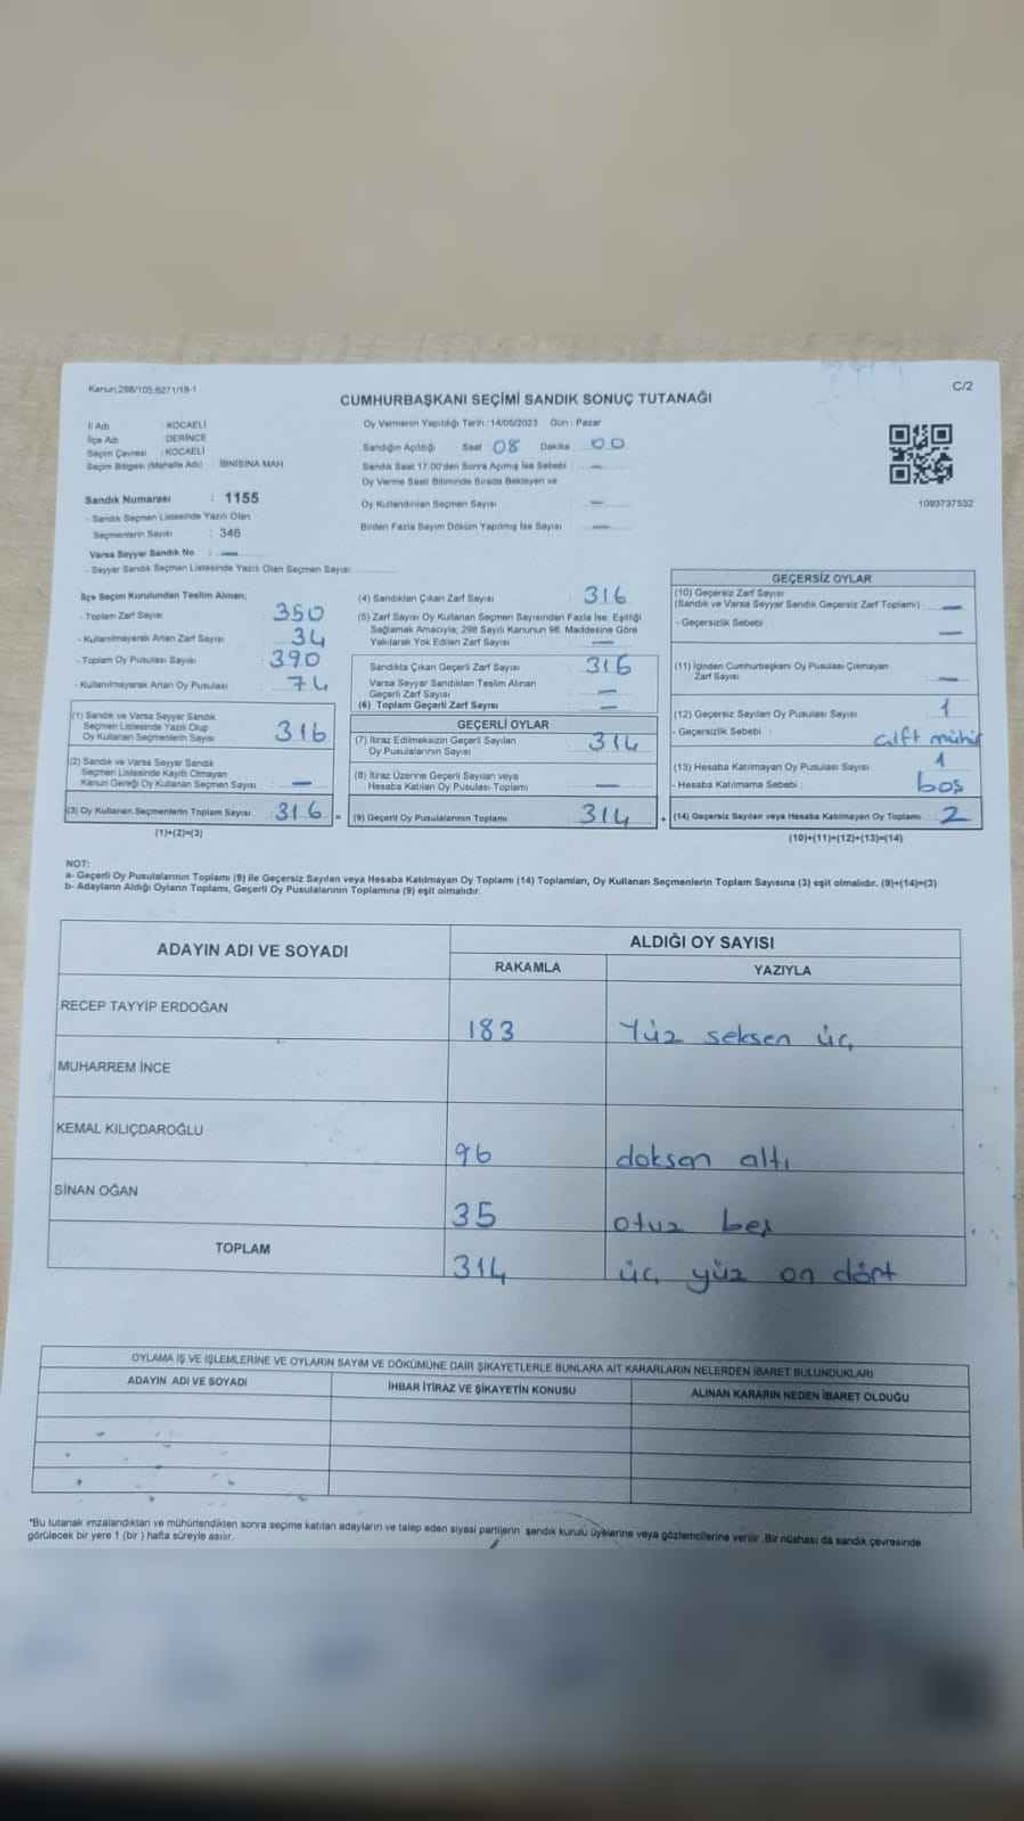 Karun 298/105.6271/19-1
C/2
CUMHURBAŞKANI SEÇİMİ SANDIK SONUÇ TUTANAĞI
İl Adı KOCAELİ
İlçe Adı DERİNCE
Seçim Çevresi KOCAELİ
Seçim Bölgesi (Mahalle Adı) İBNİSİNA MAH
Sandık Numarası : 1155
- Sandık Seçmen Listesinde Yazılı Olan
Seçmenlerin Sayısı : 346
Varsa Seyyar Sandık No : —
- Seyyar Sandık Seçmen Listesinde Yazılı Olan Seçmen Sayısı
Oy Vermenin Yapıldığı Tarih : 14/05/2023 Gün : Pazar
Sandığın Açıldığı Saat 08 Dakika 00
Sandık Saat 17.00'den Sonra Açılmış İse Sebebi —
Oy Verme Saati Bitiminde Sırada Bekleyen ve
Oy Kullandırılan Seçmen Sayısı —
Birden Fazla Sayım Döküm Yapılmış İse Sayısı —
1093737532
İlçe Seçim Kurulundan Teslim Alınan;
- Toplam Zarf Sayısı 350
- Kullanılmayarak Artan Zarf Sayısı 34
- Toplam Oy Pusulası Sayısı 390
- Kullanılmayarak Artan Oy Pusulası 74
(1) Sandık ve Varsa Seyyar Sandık
Seçmen Listesinde Yazılı Olup
Oy Kullanan Seçmenlerin Sayısı 316
(2) Sandık ve Varsa Seyyar Sandık
Seçmen Listesinde Kayıtlı Olmayan
Kanun Gereği Oy Kullanan Seçmen Sayısı —
(3) Oy Kullanan Seçmenlerin Toplam Sayısı 316 =
(1)+(2)=(3)
(4) Sandıktan Çıkan Zarf Sayısı : 316
(5) Zarf Sayısı Oy Kullanan Seçmen Sayısından Fazla İse, Eşitliği
Sağlamak Amacıyla; 298 Sayılı Kanunun 98. Maddesine Göre
Yakılarak Yok Edilen Zarf Sayısı —
Sandıkta Çıkan Geçerli Zarf Sayısı : 316
Varsa Seyyar Sandıktan Teslim Alınan
Geçerli Zarf Sayısı —
(6) Toplam Geçerli Zarf Sayısı —
GEÇERLİ OYLAR
(7) İtiraz Edilmeksizin Geçerli Sayılan
Oy Pusulalarının Sayısı 314
(8) İtiraz Üzerine Geçerli Sayılan veya
Hesaba Katılan Oy Pusulası Toplamı —
(9) Geçerli Oy Pusulalarının Toplamı 314 +
GEÇERSİZ OYLAR
(10) Geçersiz Zarf Sayısı
(Sandık ve Varsa Seyyar Sandık Geçersiz Zarf Toplamı) —
- Geçersizlik Sebebi —
(11) İçinden Cumhurbaşkanı Oy Pusulası Çıkmayan
Zarf Sayısı —
(12) Geçersiz Sayılan Oy Pusulası Sayısı 1
- Geçersizlik Sebebi : çift mühür
(13) Hesaba Katılmayan Oy Pusulası Sayısı 1
- Hesaba Katılmama Sebebi : boş
(14) Geçersiz Sayılan veya Hesaba Katılmayan Oy Toplamı 2
(10)+(11)+(12)+(13)=(14)
NOT:
a- Geçerli Oy Pusulalarının Toplamı (9) ile Geçersiz Sayılan veya Hesaba Katılmayan Oy Toplamı (14) Toplamları, Oy Kullanan Seçmenlerin Toplam Sayısına (3) eşit olmalıdır. (9)+(14)=(3)
b- Adayların Aldığı Oyların Toplamı, Geçerli Oy Pusulalarının Toplamına (9) eşit olmalıdır.
ADAYIN ADI VE SOYADI
ALDIĞI OY SAYISI
RAKAMLA YAZIYLA
RECEP TAYYİP ERDOĞAN 183 Yüz seksen üç
MUHARREM İNCE
KEMAL KILIÇDAROĞLU 96 doksan altı
SİNAN OĞAN 35 otuz beş
TOPLAM 314 üç yüz on dört
OYLAMA İŞ VE İŞLEMLERİNE VE OYLARIN SAYIM VE DÖKÜMÜNE DAİR ŞİKAYETLERLE BUNLARA AİT KARARLARIN NELERDEN İBARET BULUNDUKLARI
ADAYIN ADI VE SOYADI İHBAR İTİRAZ VE ŞİKAYETİN KONUSU ALINAN KARARIN NEDEN İBARET OLDUĞU
*Bu tutanak imzalandıktan ve mühürlendikten sonra seçime katılan adayların ve talep eden siyasi partilerin sandık kurulu üyelerine veya gözlemcilerine verilir. Bir nüshası da sandık çevresinde
görülecek bir yere 1 (bir) hafta süreyle asılır.